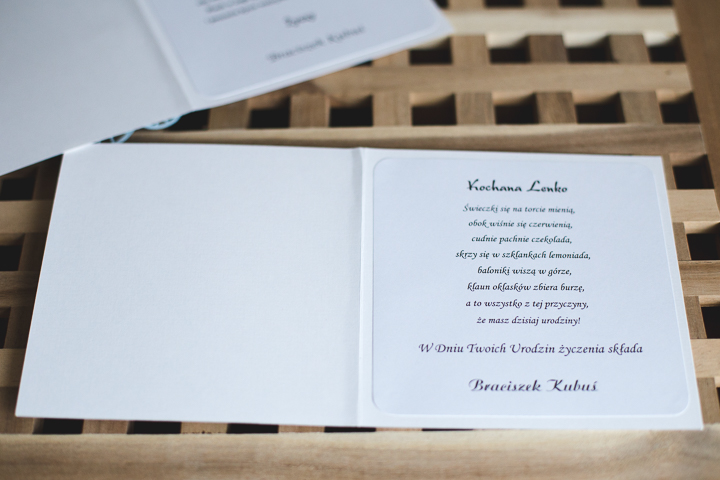 Braciszek Kubuś
Kochana Lenko
Świeczki się na torcie mienią,
obok wiśnie się czerwienią,
cudnie pachnie czekolada,
skrzy się w szklankach lemoniada,
baloniki wiszą w górze,
klaun oklasków zbiera burzę,
a to wszystko z tej przyczyny,
że masz dzisiaj urodziny!
W Dniu Twoich Urodzin życzenia składa
Braciszek Kubuś